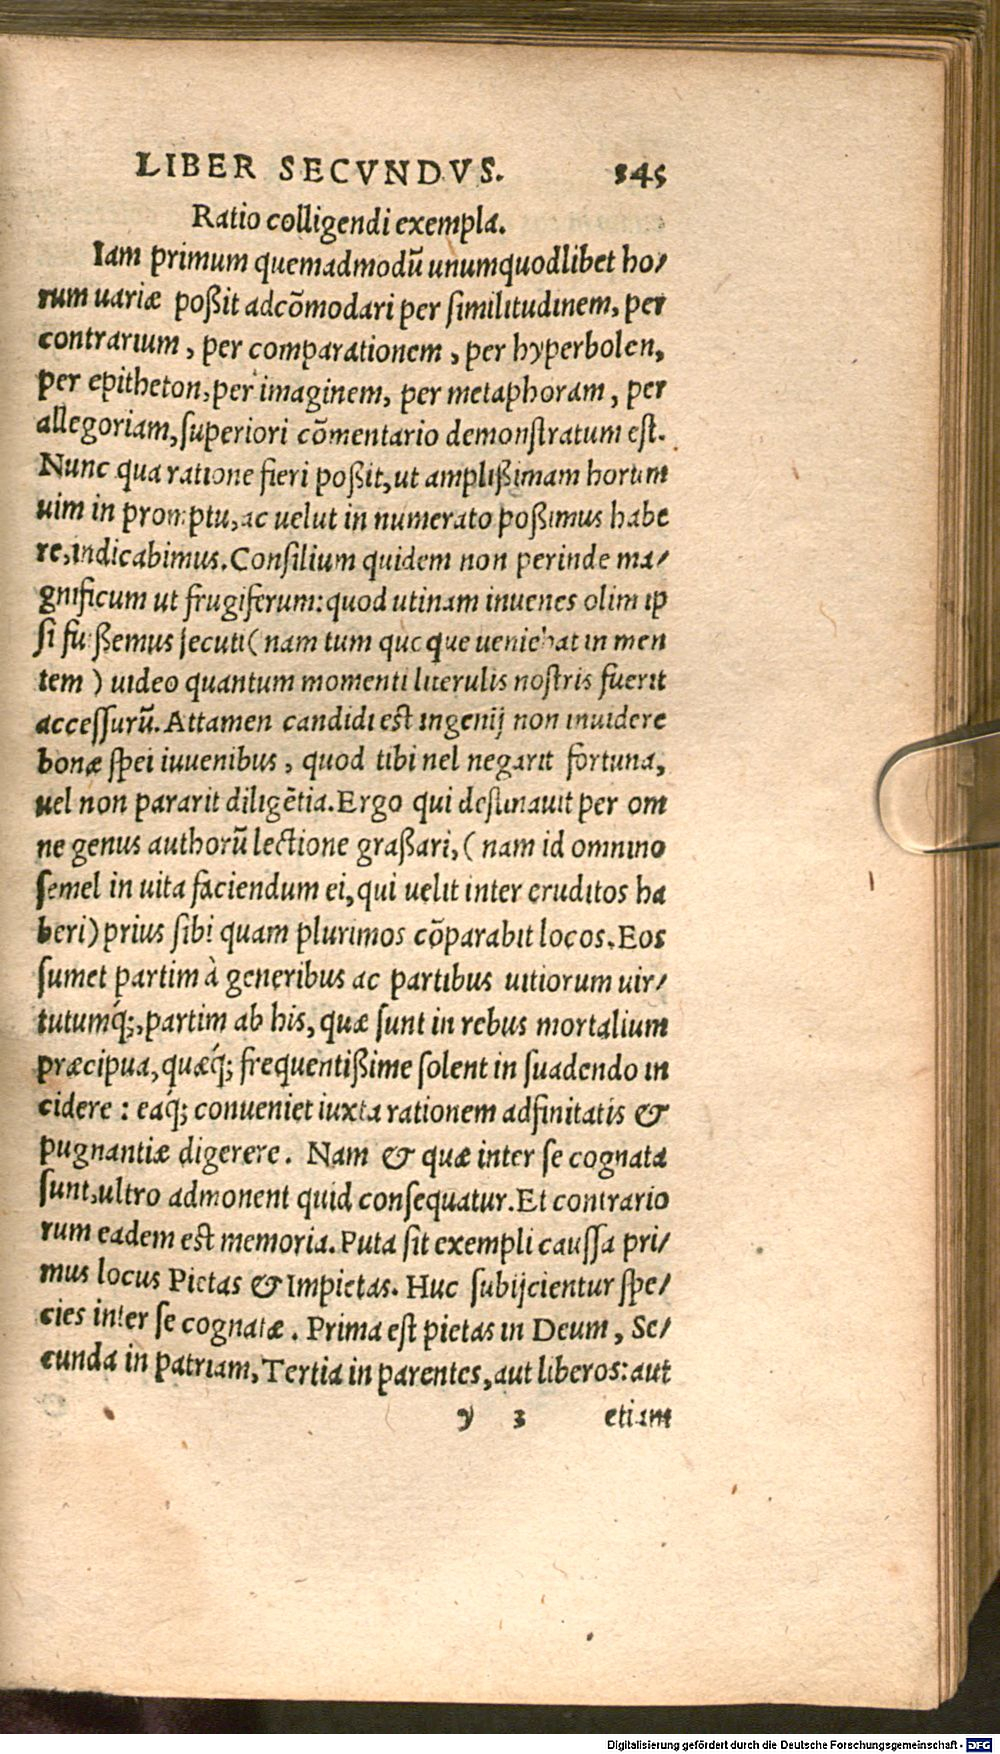 LIBER SECVNDVS. 345
Ratio colligendi exempla.
Iam primum quemadmodū unumquodlibet ho/
rum uariæ poßit adcōmodari per similitudinem, per
contrarium, per comparationem, per hyperbolen,
per epitheton, per imaginem, per metaphoram, per
allegoriam, superiori cōmentario demonstratum est.
Nunc qua ratione fieri poßit, ut amplißimam horum
uim in promptu, ac uelut in numerato poßimus habe
re, indicabimus. Consilium quidem non perinde ma/
gnificum ut frugiferum: quod utinam iuuenes olim ip
si fußemus secuti (nam tum quoque ueniebat in men
tem) uideo quantum momenti literulis nostris fuerit
accessurū. Attamen candidi est ingenij non inuidere
bonæ spei iuuenibus, quod tibi nel negarit fortuna,
uel non pararit diligētia. Ergo qui destinauit per om
ne genus authorū lectione graßari, (nam id omnino
semel in uita faciendum ei, qui uelit inter eruditos ha
beri) prius sibi quam plurimos cōparabit locos. Eos
sumet partim à generibus ac partibus uitiorum uir/
tutumq́;, partim ab his, quæ sunt in rebus mortalium
præcipua, quæq́; frequentißime solent in suadendo in
cidere: eaq́; conueniet iuxta rationem adfinitatis &
pugnantiæ digerere. Nam & quæ inter se cognata
sunt, ultro admonent quid consequatur. Et contrario
rum eadem est memoria. Puta sit exempli caussa pri/
mus locus Pietas & Impietas. Huc subijcientur spe/
cies inter se cognatæ. Prima est pietas in Deum, Se/
cunda in patriam, Tertia in parentes, aut liberos: aut
y 3 etiam
Digitalisierung gefördert durch die Deutsche Forschungsgemeinschaft - DFG